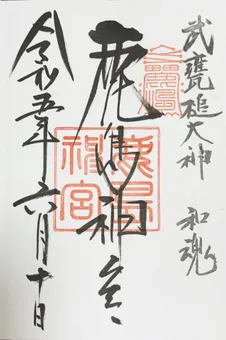 武甕槌大神 和魂
鹿島神宮
鹿島
神宮
令和五年六月十日